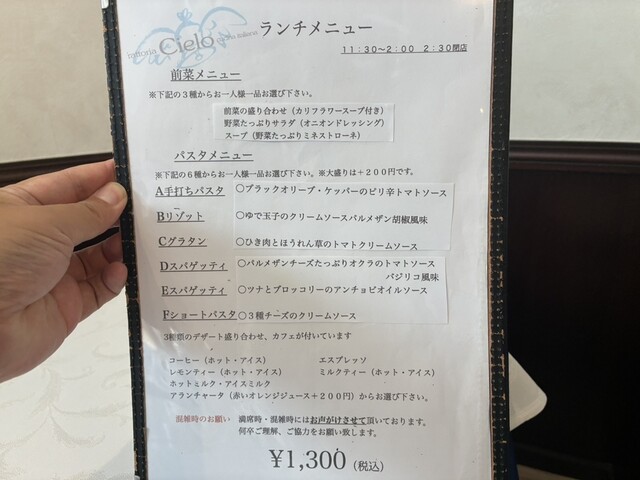 trattoria Cielo cucina italiana
ランチメニュー
11：30～2：00 2：30閉店
前菜メニュー
※下記の３種からお一人様一品お選び下さい。
前菜の盛り合わせ（カリフラワースープ付き）
野菜たっぷりサラダ（オニオンドレッシング）
スープ（野菜たっぷりミネストローネ）
パスタメニュー
※下記の６種からお一人様一品お選び下さい。※大盛りは＋２００円です。
A手打ちパスタ ○ブラックオリーブ・ケッパーのピリ辛トマトソース
Bリゾット ○ゆで玉子のクリームソースパルメザン胡椒風味
Cグラタン ○ひき肉とほうれん草のトマトクリームソース
Dスパゲッティ ○パルメザンチーズたっぷりオクラのトマトソース
バジリコ風味
Eスパゲッティ ○ツナとブロッコリーのアンチョビオイルソース
Fショートパスタ ○３種チーズのクリームソース
3種類のデザート盛り合わせ、カフェが付いています
コーヒー（ホット・アイス） エスプレッソ
レモンティー（ホット・アイス） ミルクティー（ホット・アイス）
ホットミルク・アイスミルク
アランチャータ（赤いオレンジジュース＋２００円）からお選び下さい。
混雑時のお願い 満席時・混雑時にはお声がけさせて頂いております。
何卒ご理解、ご協力をお願い致します。
¥1,300（税込）